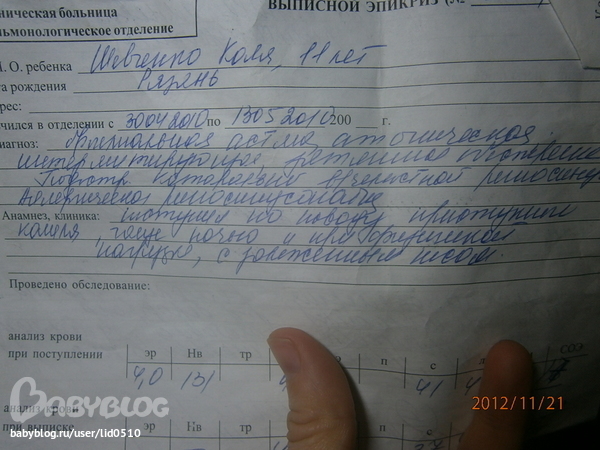 ническая больница
ВЫПИСНОЙ ЭПИКРИЗ (№
льмонологическое отделение
.О. ребенка Шевченко Коля, 11 лет
та рождения Рязань
рес:
чился в отделении с 30042010 по 13052010 200 г.
иагноз: Бронхиальная астма, атопическая
обострение
Подостр. катаральный
Аллергическая
Анамнез, клиника: поступил по поводу приступного
кашля, чаще ночью и при физической
нагрузке, с заложенным носом.
Проведено обследование:
анализ крови
при поступлении
эр Hв тр п с л СОЭ
4,0 131 41
анализ крови
при выписке
BABYBLOG
babyblog.ru/user/lid0510
2012/11/21